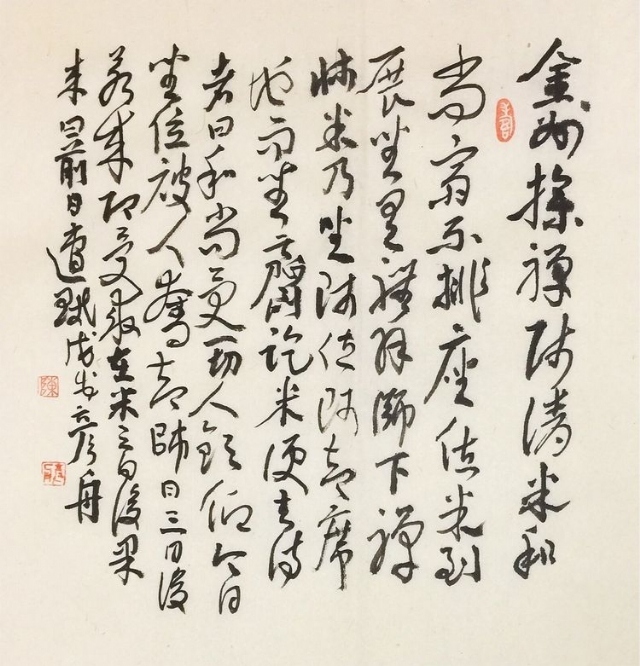 金州操禪師請米和
尚齋不排座位米到
展坐具禮拜師下禪
牀米乃坐師位師却席
地而坐齋訖米便去侍
者曰和尚受一切人欽仰今日
坐位被人奪却師曰三日後
若來即受救在米三日後果
來曰前日遭賊 彥舟